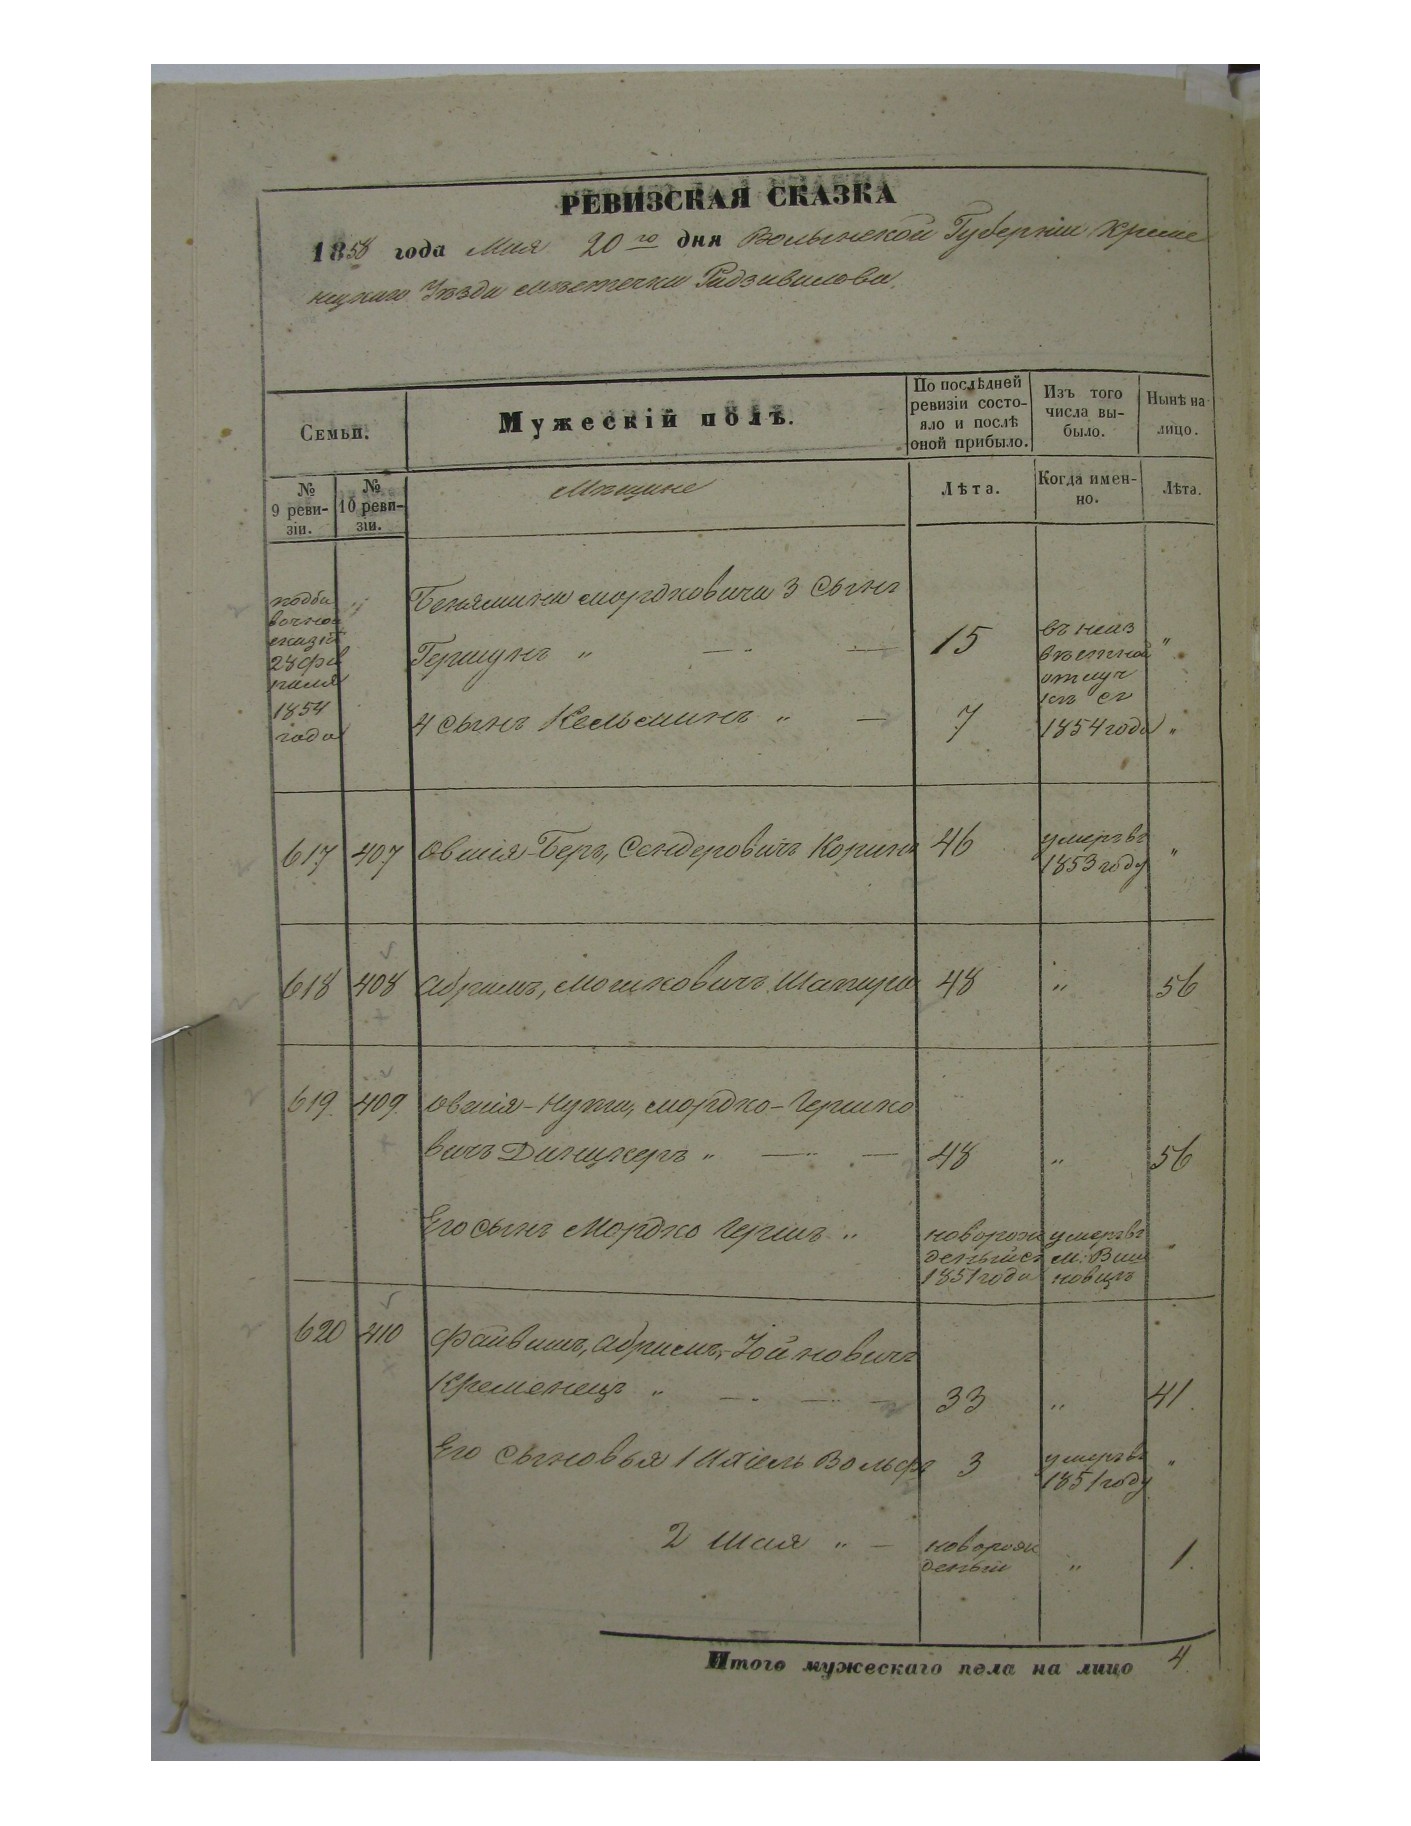 РЕВИЗСКАЯ СКАЗКА
1858 года Мая 20го дня Волынской Губерніи Креме
нецкаго Уѣзда мѣстечка Радзивилова
Семьи.
Мужескій полъ.
По послѣдней ревизіи состояло и послѣ оной прибыло.
Изъ того числа выбыло.
Нынѣ на лицо.
№ 9 ревизіи.
№ 10 ревизіи.
Мѣщане
Лѣта.
Когда именно.
Лѣта.
сказкѣ
1854
года
Бенямина Мордковича 3 сынъ
Гершунъ " — — 15 въ неиз
вѣстной
отлуч
къ съ "
4 сынъ Кельманъ " — 7 1854 года "
617 407 Овшія-Беръ, Сендеровичъ 46 умеръ въ
1853 году "
618 408 Абрамъ, Мошковичъ 48 " 56
619. 409. Овшія-Нута, Мордко-Гершко
вичъ Данцкеръ " — — 48 " 56
Его сынъ Мордко Гершъ " новорож умеръ въ
денъ съ м. Виш "
1851 года новцѣ
620 410 Файвишъ, Абрамъ,-Іойновичъ
Кременецъ " — — — 33 " 41.
Его сыновья 1 Ихіель Вольфъ 3 умеръ въ
1851 году "
2 Шая " — новорож
деный " 1.
Итого мужескаго пола на лицо 4.